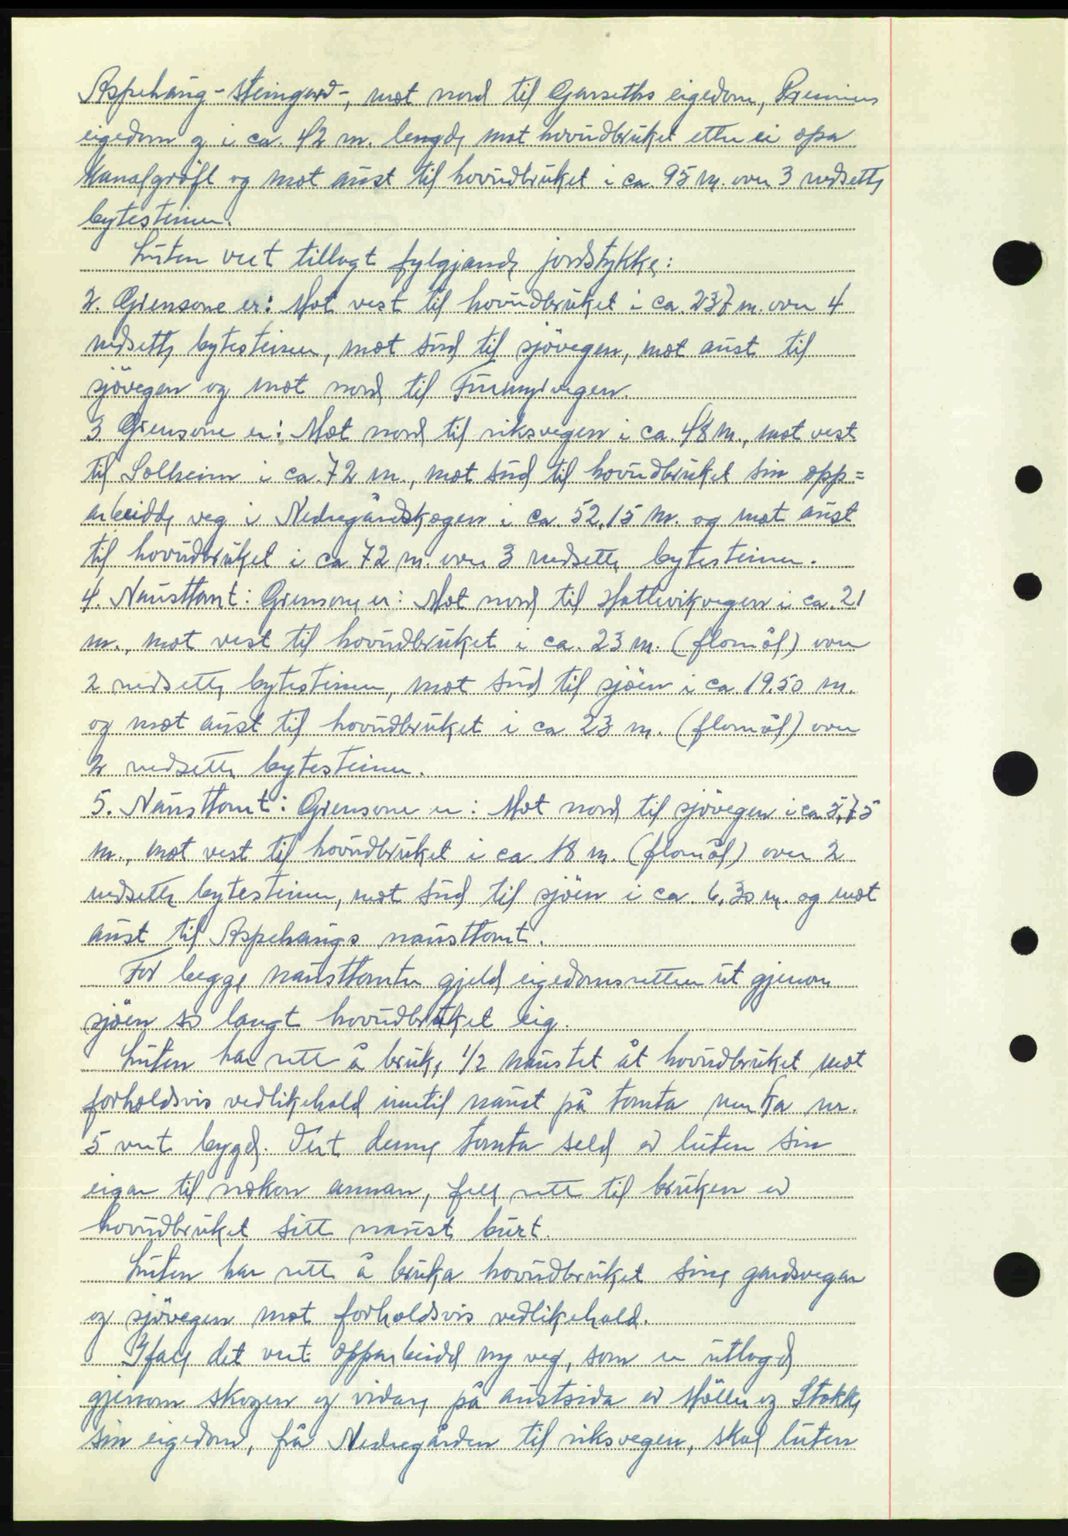 Aspehaug - steingard -, mot nord til Garseths eigedom,
eigedom og i ca. 42 m. lengde mot hovudbruket etter ei opa
kanalgrøft og mot aust til hovudbruket i ca. 95 m. over 3 nedsette
bytesteinar.
Luten vert tillagt fylgjande jordstykke:
2. Grensone er: Mot vest til hovudbruket i ca. 237 m. over 4
nedsette bytesteinar, mot sud til sjövegen, mot aust til
sjövegen og mot nord til Furmyrvegen.
3 Grensone er: Mot nord til riksvegen i ca. 48 m., mot vest
til Solheim i ca. 72 m., mot sud til hovudbruket sin opp=
arbeidde veg i Nedregårdskogen i ca 52,15 m. og mot aust
til hovudbruket i ca 72 m. over 3 nedsette bytesteinar.
4. Nausttomt: Grensone er: Mot nord til Hattevikvegen i ca. 21
m., mot vest til hovudbruket i ca. 23 m. (flomål) over
2 nedsette bytesteinar, mot sud til sjöen i ca 19.50 m.
og mot aust til hovudbruket i ca 23 m. (flomål) over
2 nedsette bytesteinar.
5. Nausttomt: Grensone er: Mot nord til sjövegen i ca 5,75
m., mot vest til hovudbruket i ca 18 m. (flomål) over 2
nedsette bytesteinar, mot sud til sjöen i ca. 6,30 m. og mot
aust til Aspehaugs nausttomt.
For begge nausttomter gjeld eigedomsretten ut gjenom
sjöen so langt hovudbruket eig.
Luten har rett å bruke 1/2 naustet åt hovudbruket mot
forholdsvis vedlikehald inntil naust på tomta merka nr.
5 vert bygd. Vert denne tomta seld av luten sin
eigar til nokon annan, fell rett til bruken av
hovudbruket sitt naust burt.
Luten har rett å bruka hovudbruket sine gardsvegar
og sjövegen mot forholdsvis vedlikehald.
Ifall det vert opparbeidd ny veg, som er utlagd
gjenom skogen og vidare på austsida av Möller og Stokke
sin eigedom, frå Nedregården til riksvegen, skal luten